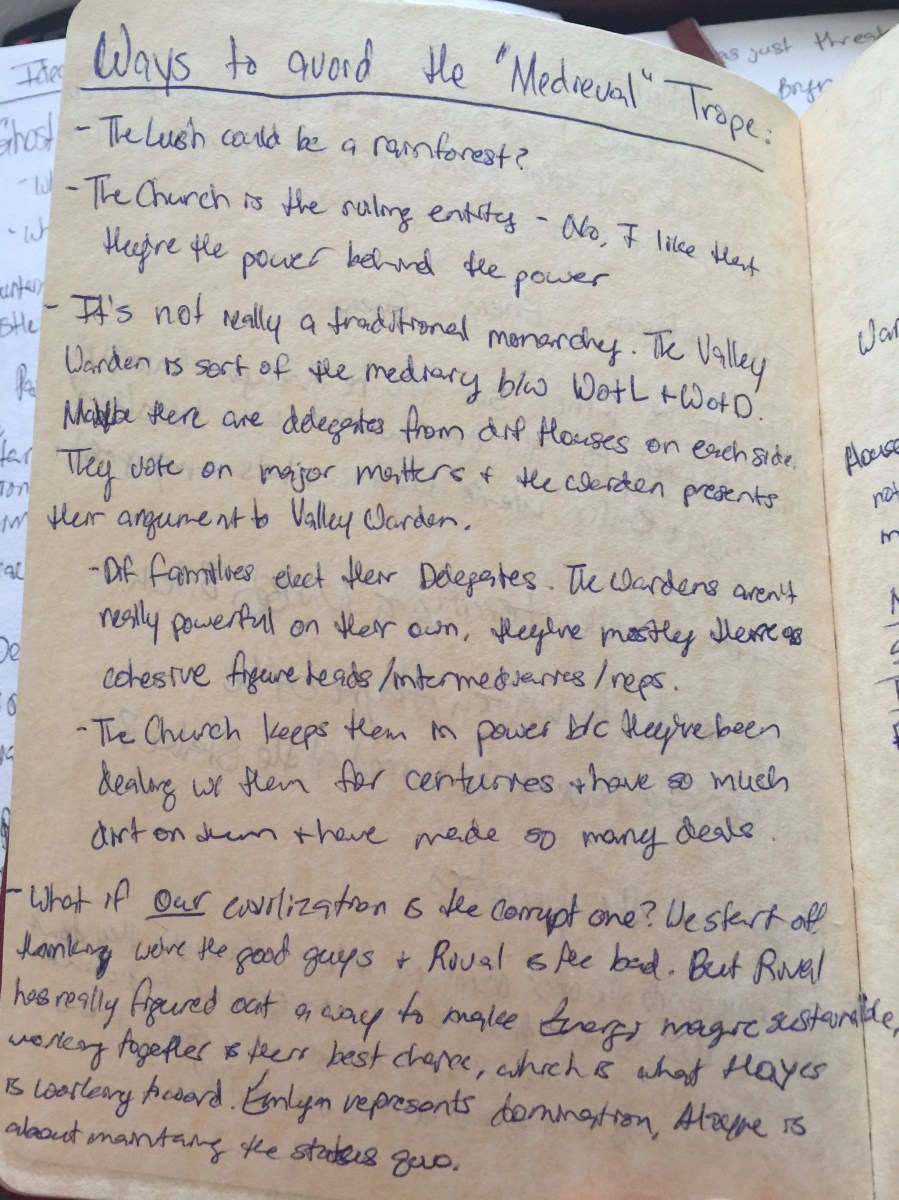 Ways to avoid the "Medieval" Trope:
- The Lush could be a rainforest?
- The Church is the ruling entity - No, I like that
they're the power behind the power
- It's not really a traditional monarchy. The Valley
Warden is sort of the mediary b/w WotL + WotD.
Maybe there are delegates from dif Houses on each side.
They vote on major matters + the Warden presents
their argument to Valley Warden.
- Dif families elect their Delegates. The Wardens aren't
really powerful on their own, they're mostly there as
cohesive figure heads/intermediaries/reps.
- The Church keeps them in power b/c they've been
dealing w/ them for centuries + have so much
dirt on them + have made so many deals.
- What if our civilization is the corrupt one? We start off
thinking we're the good guys + Rival is the bad. But Rival
has really figured out a way to make Energy magic sustainable,
working together is their best chance, which is what Hayes
is working toward. Emlyn represents domination, is
about maintaing the status quo.
as just